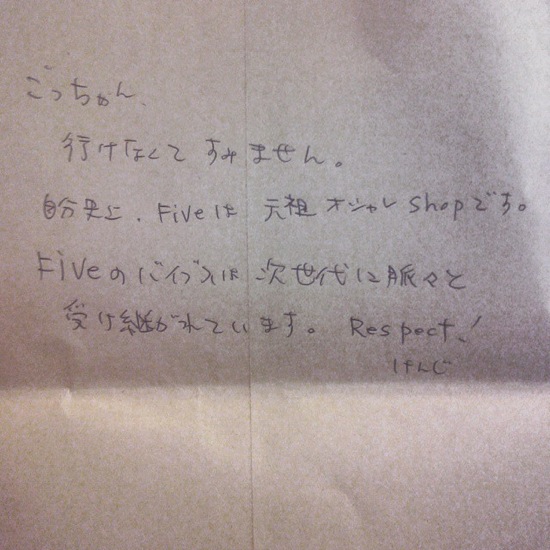 ごっちゃん、
行けなくてすみません。
自分史上、Fiveは元祖オシャレshopです。
Fiveのバイブスは次世代に脈々と
受け継がれています。 Respect!
けんじ